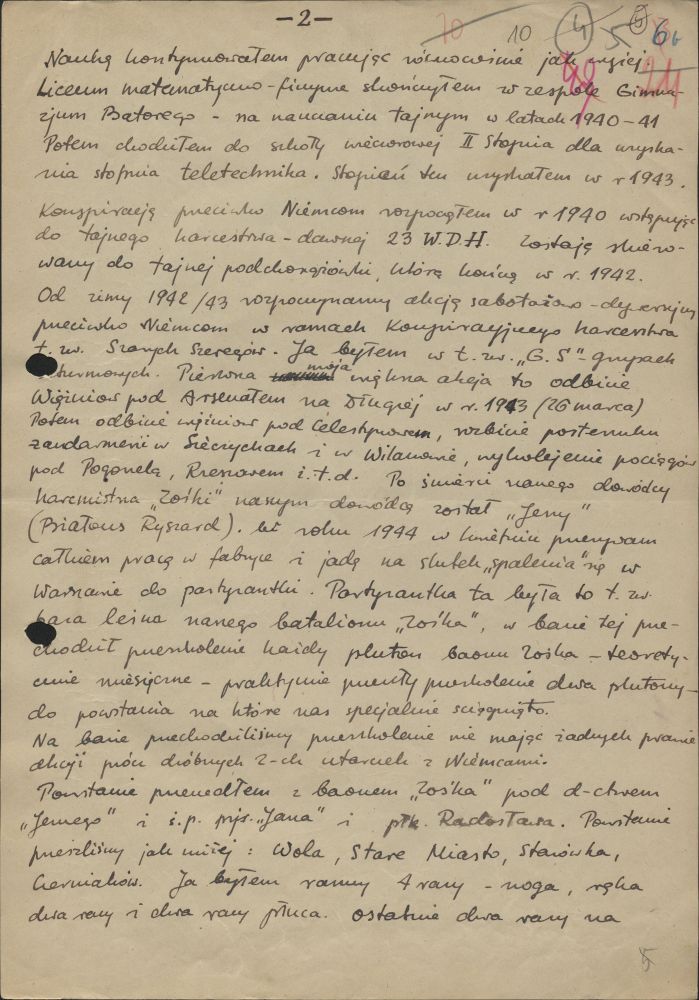 —2—
10 10 4 5 6 6b
49 21
Naukę kontynuowałem pracując równocześnie jak wyżej.
Liceum matematyczno-fizyczne skończyłem w zespole Gimna-
zjum Batorego - na nauczaniu tajnym w latach 1940-41
Potem chodziłem do szkoły wieczorowej II Stopnia dla uzyska-
nia stopnia teletechnika. Stopień ten uzyskałem w r 1943.
Konspirację przeciwko Niemcom rozpocząłem w r 1940 wstępując
do tajnego harcerstwa - dawnej 23 W.D.H. Zostaję skiero-
wany do tajnej podchorążówki, którą kończę w r. 1942.
Od zimy 1942/43 rozpoczynamy akcję sabotażowo-dywersyjną
przeciwko Niemcom w ramach Konspiracyjnego harcerstwa
t. zw. Szarych Szeregów. Ja byłem w t. zw. „G. S" grupach
szturmowych. Pierwsza moja większa akcja to odbicie
Więźniów pod Arsenałem na Długiej w r. 1943 (26 marca)
Potem odbicie więźniów pod Celestynowem, rozbicie posterunku
żandarmerii w Sieczychach i w Wilanowie, wykolejenie pociągów
pod Pogonelą, Rzeszowem i.t.d. Po śmierci naszego dowódcy
harcmistrza „Zośki" naszym dowódcą został „Jerzy"
(Białous Ryszard). W roku 1944 w kwietniu przerywam
całkiem pracę w fabryce i jadę na skutek „spalenia" się w
Warszawie do partyzantki. Partyzantka ta była to t. zw.
baza leśna naszego batalionu „Zośka", w bazie tej prze-
chodził przeszkolenie każdy pluton baonu Zośka - teorety-
cznie miesięczne - praktycznie przeszły przeszkolenie dwa plutony -
do powstania na które nas specjalnie ściągnięto.
Na bazie przechodziliśmy przeszkolenie nie mając żadnych prawie
akcji prócz drobnych 2-ch utarczek z Niemcami.
Powstanie przeszedłem z baonem „Zośka" pod d-ctwem
„Jerzego" i ś.p. mjr. „Jana" i płk. Radosława. Powstanie
przeszliśmy jak niżej: Wola, Stare Miasto, Starówka,
Czerniaków. Ja byłem ranny 4 razy - noga, ręka
dwa razy i dwa razy płuca. Ostatnie dwa razy na